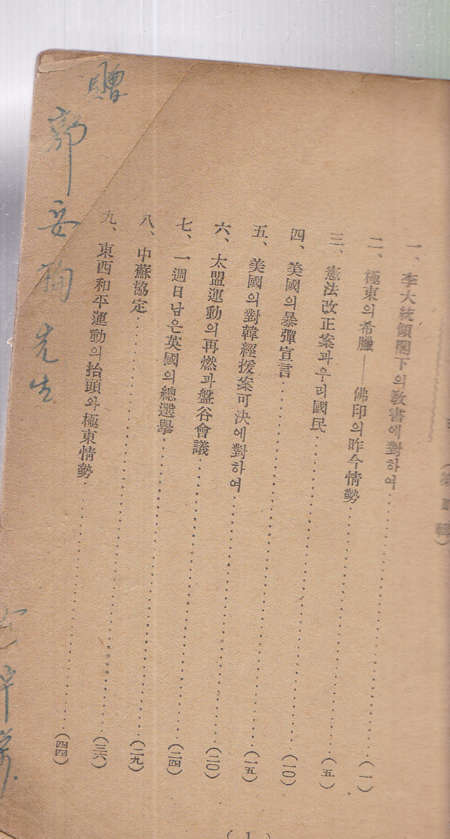 (第
輯)
一、李大統領閣下의敎書에對하여 (一)
二、極東의希臘——佛印의昨今情勢 (五)
三、憲法改正案과우리國民 (一〇)
四、美國의暴彈宣言 (一五)
五、美國의對韓經援案可決에對하여 (二〇)
六、太盟運動의再燃과盤谷會議 (二四)
七、一週日남은英國의總選擧 (二九)
八、中蘇協定 (三六)
九、東西和平運動의抬頭와極東情勢 (四四)
贈
郭安 先生
( 1 )